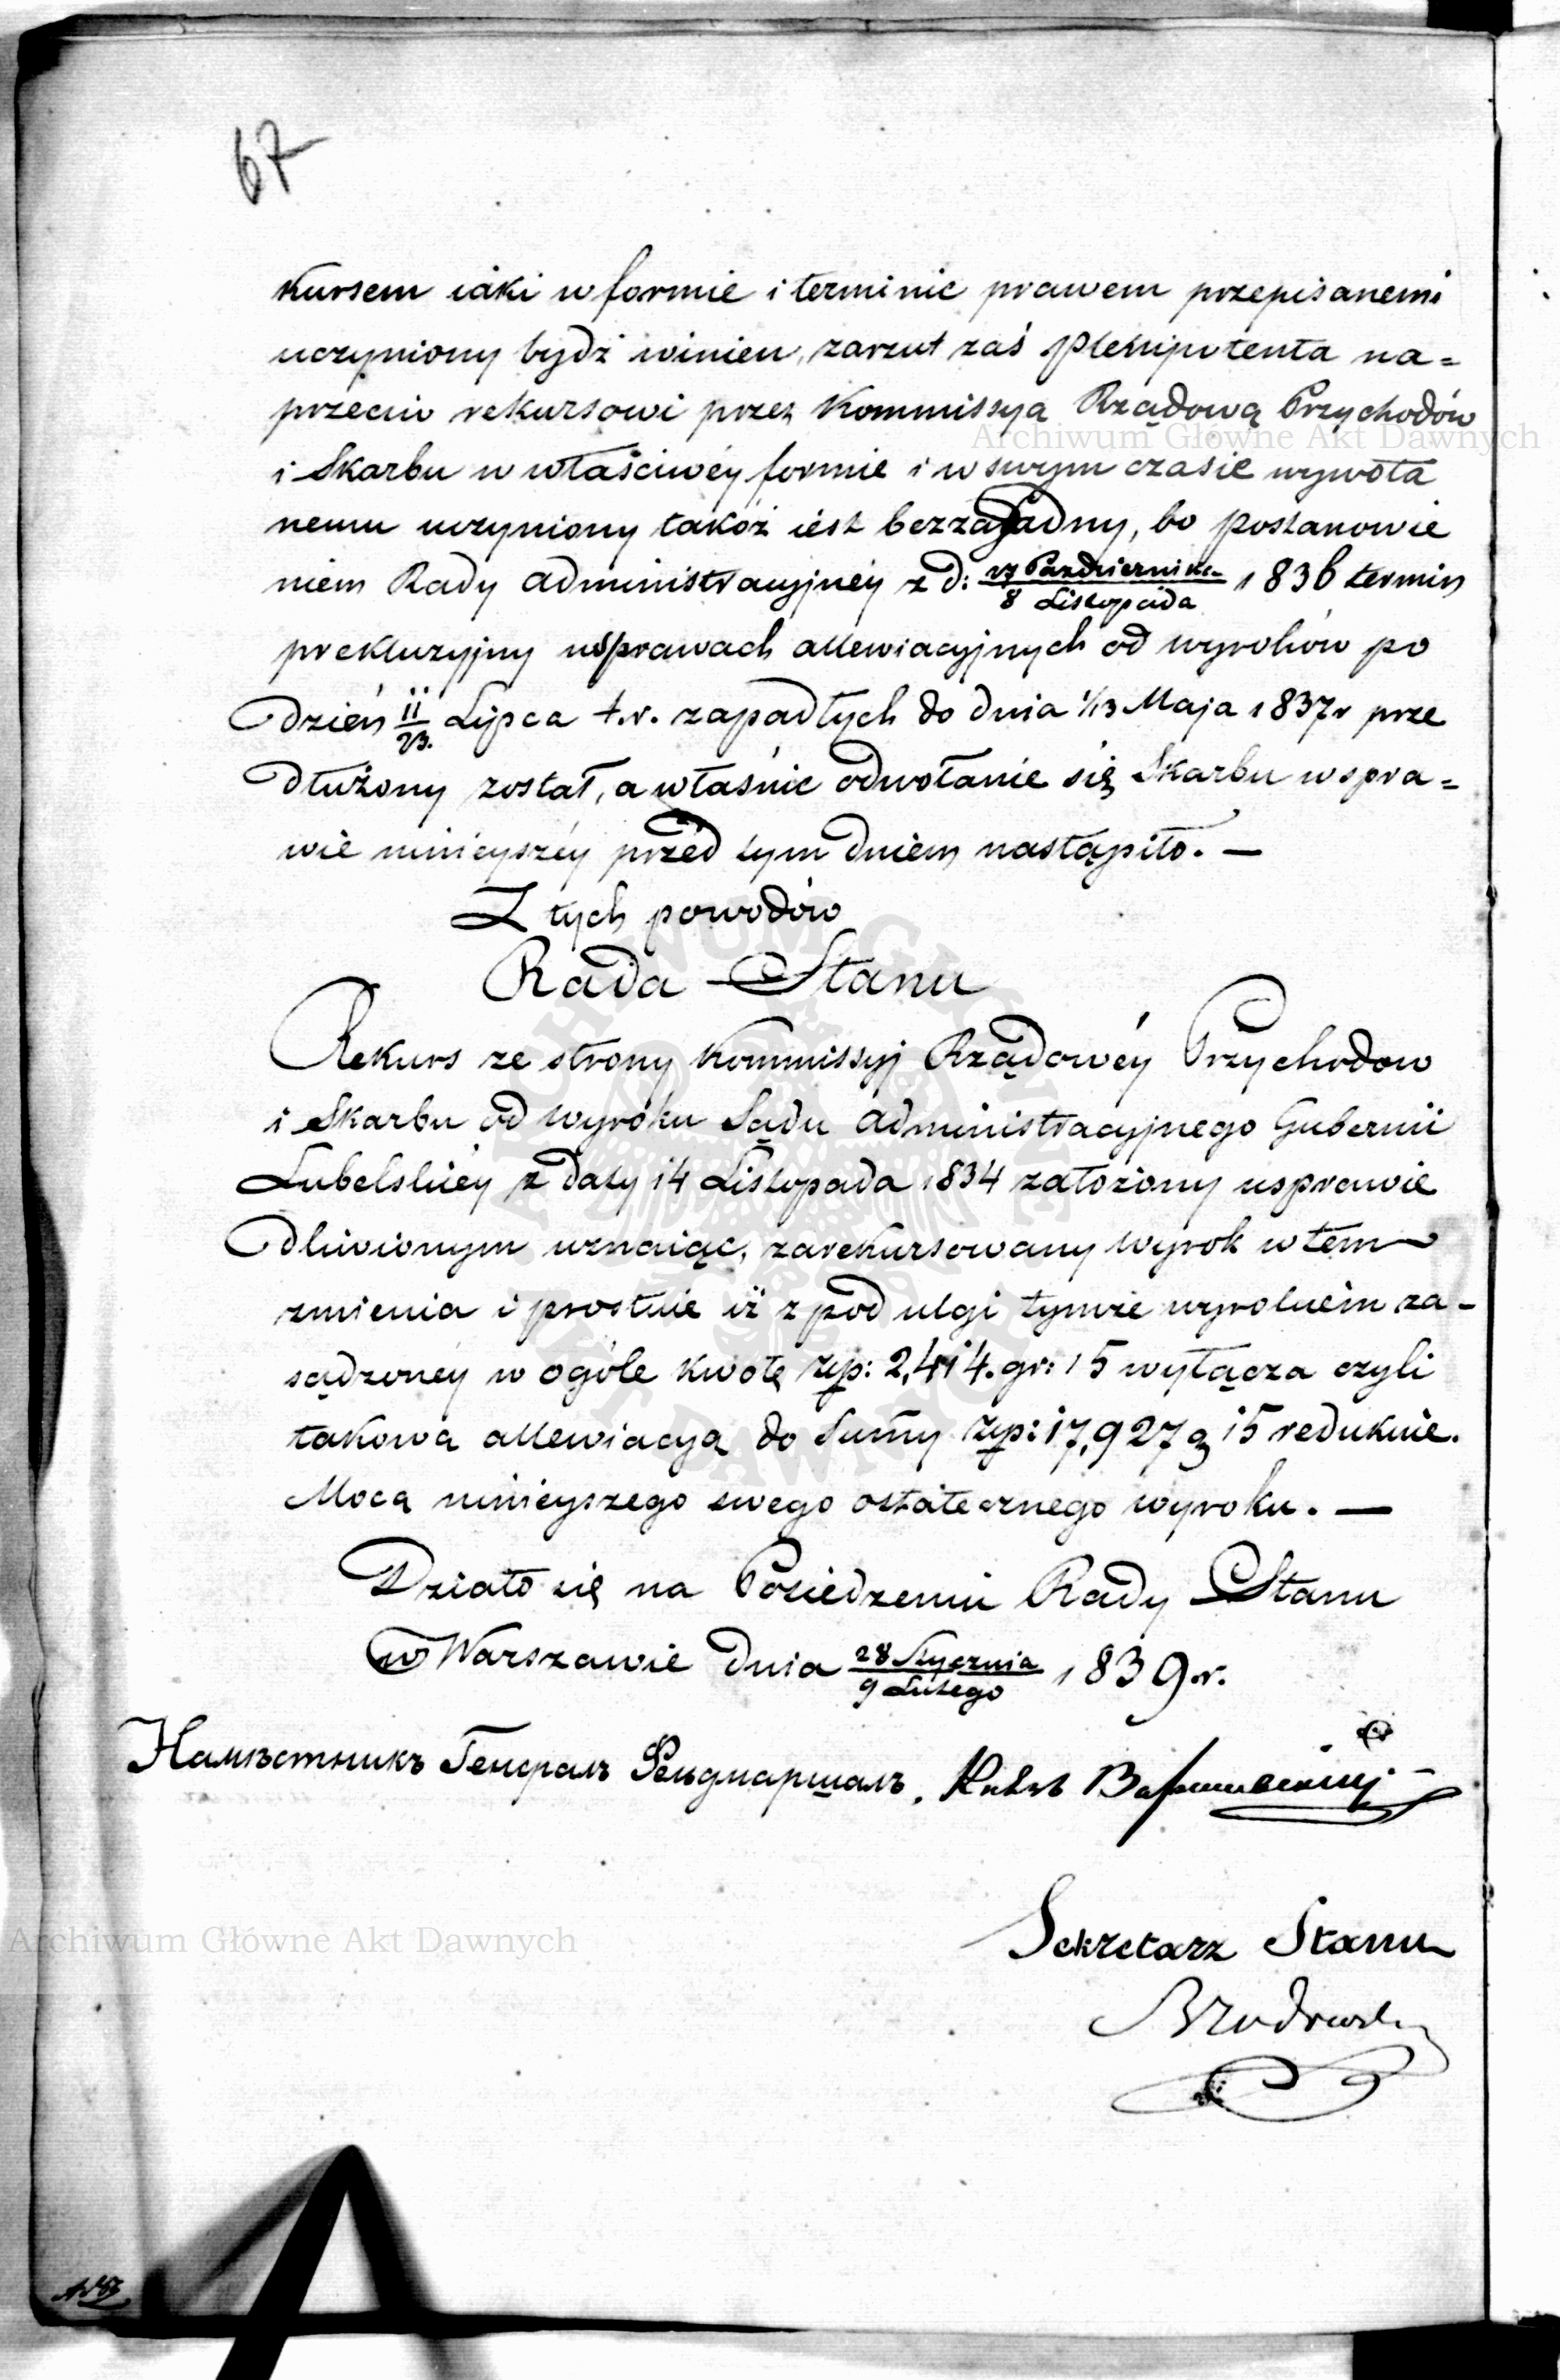 67
kursem iaki w formie i terminie prawem przepisanemi
uczyniony bydź winien, zarzut zaś plenipotenta na=
przeciw rekursowi przez Kommissya Rządową Przychodów
i Skarbu w właściwéy formie i w swym czasie wywoła
nemu uczyniony takoż iest bezzasadny, bo postanowie
niem Rady Administracyjnéy z d: 27 Października / 8 Listopada 1836 termin
prekluzyjny w sprawach allewiacyjnych od wyroków po
dzień 11/23. Lipca t.r. zapadłych do dnia 1/13 Maja 1837 r prze
dłużony został, a właśnie odwołanie się Skarbu w spra=
wie ninieyszéy przed tym dniem nastąpiło. —
Z tych powodów
Rada Stanu
Rekurs ze strony Kommissyj Rządowéy Przychodow
i Skarbu od wyroku Sądu Administracyjnego Gubernii
Lubelskiéy z daty 14 Listopada 1834 założony usprawie
dliwionym uznaiąc, zarekursowany wyrok w tem
zmienia i prostuie iż z pod ulgi tymże wyrokiem za-
sądzonéy w ogóle kwotę złp: 2,414. gr: 15 wyłącza czyli
takowa allewiacyą do Summy złp: 17,927 g 15 redukuie.
Mocą ninieyszego swego ostatecznego wyroku. —
Działo się na Posiedzeniu Rady Stanu
w Warszawie dnia 28 Stycznia / 9 Lutego 1839 r.
Намѣстникъ Генералъ Фельдмаршалъ, Князь Варшавскій
Sekretarz Stanu
Archiwum Główne Akt Dawnych
Archiwum Główne Akt Dawnych
ARCHIWUM GŁÓWNE AKT DAWNYCH